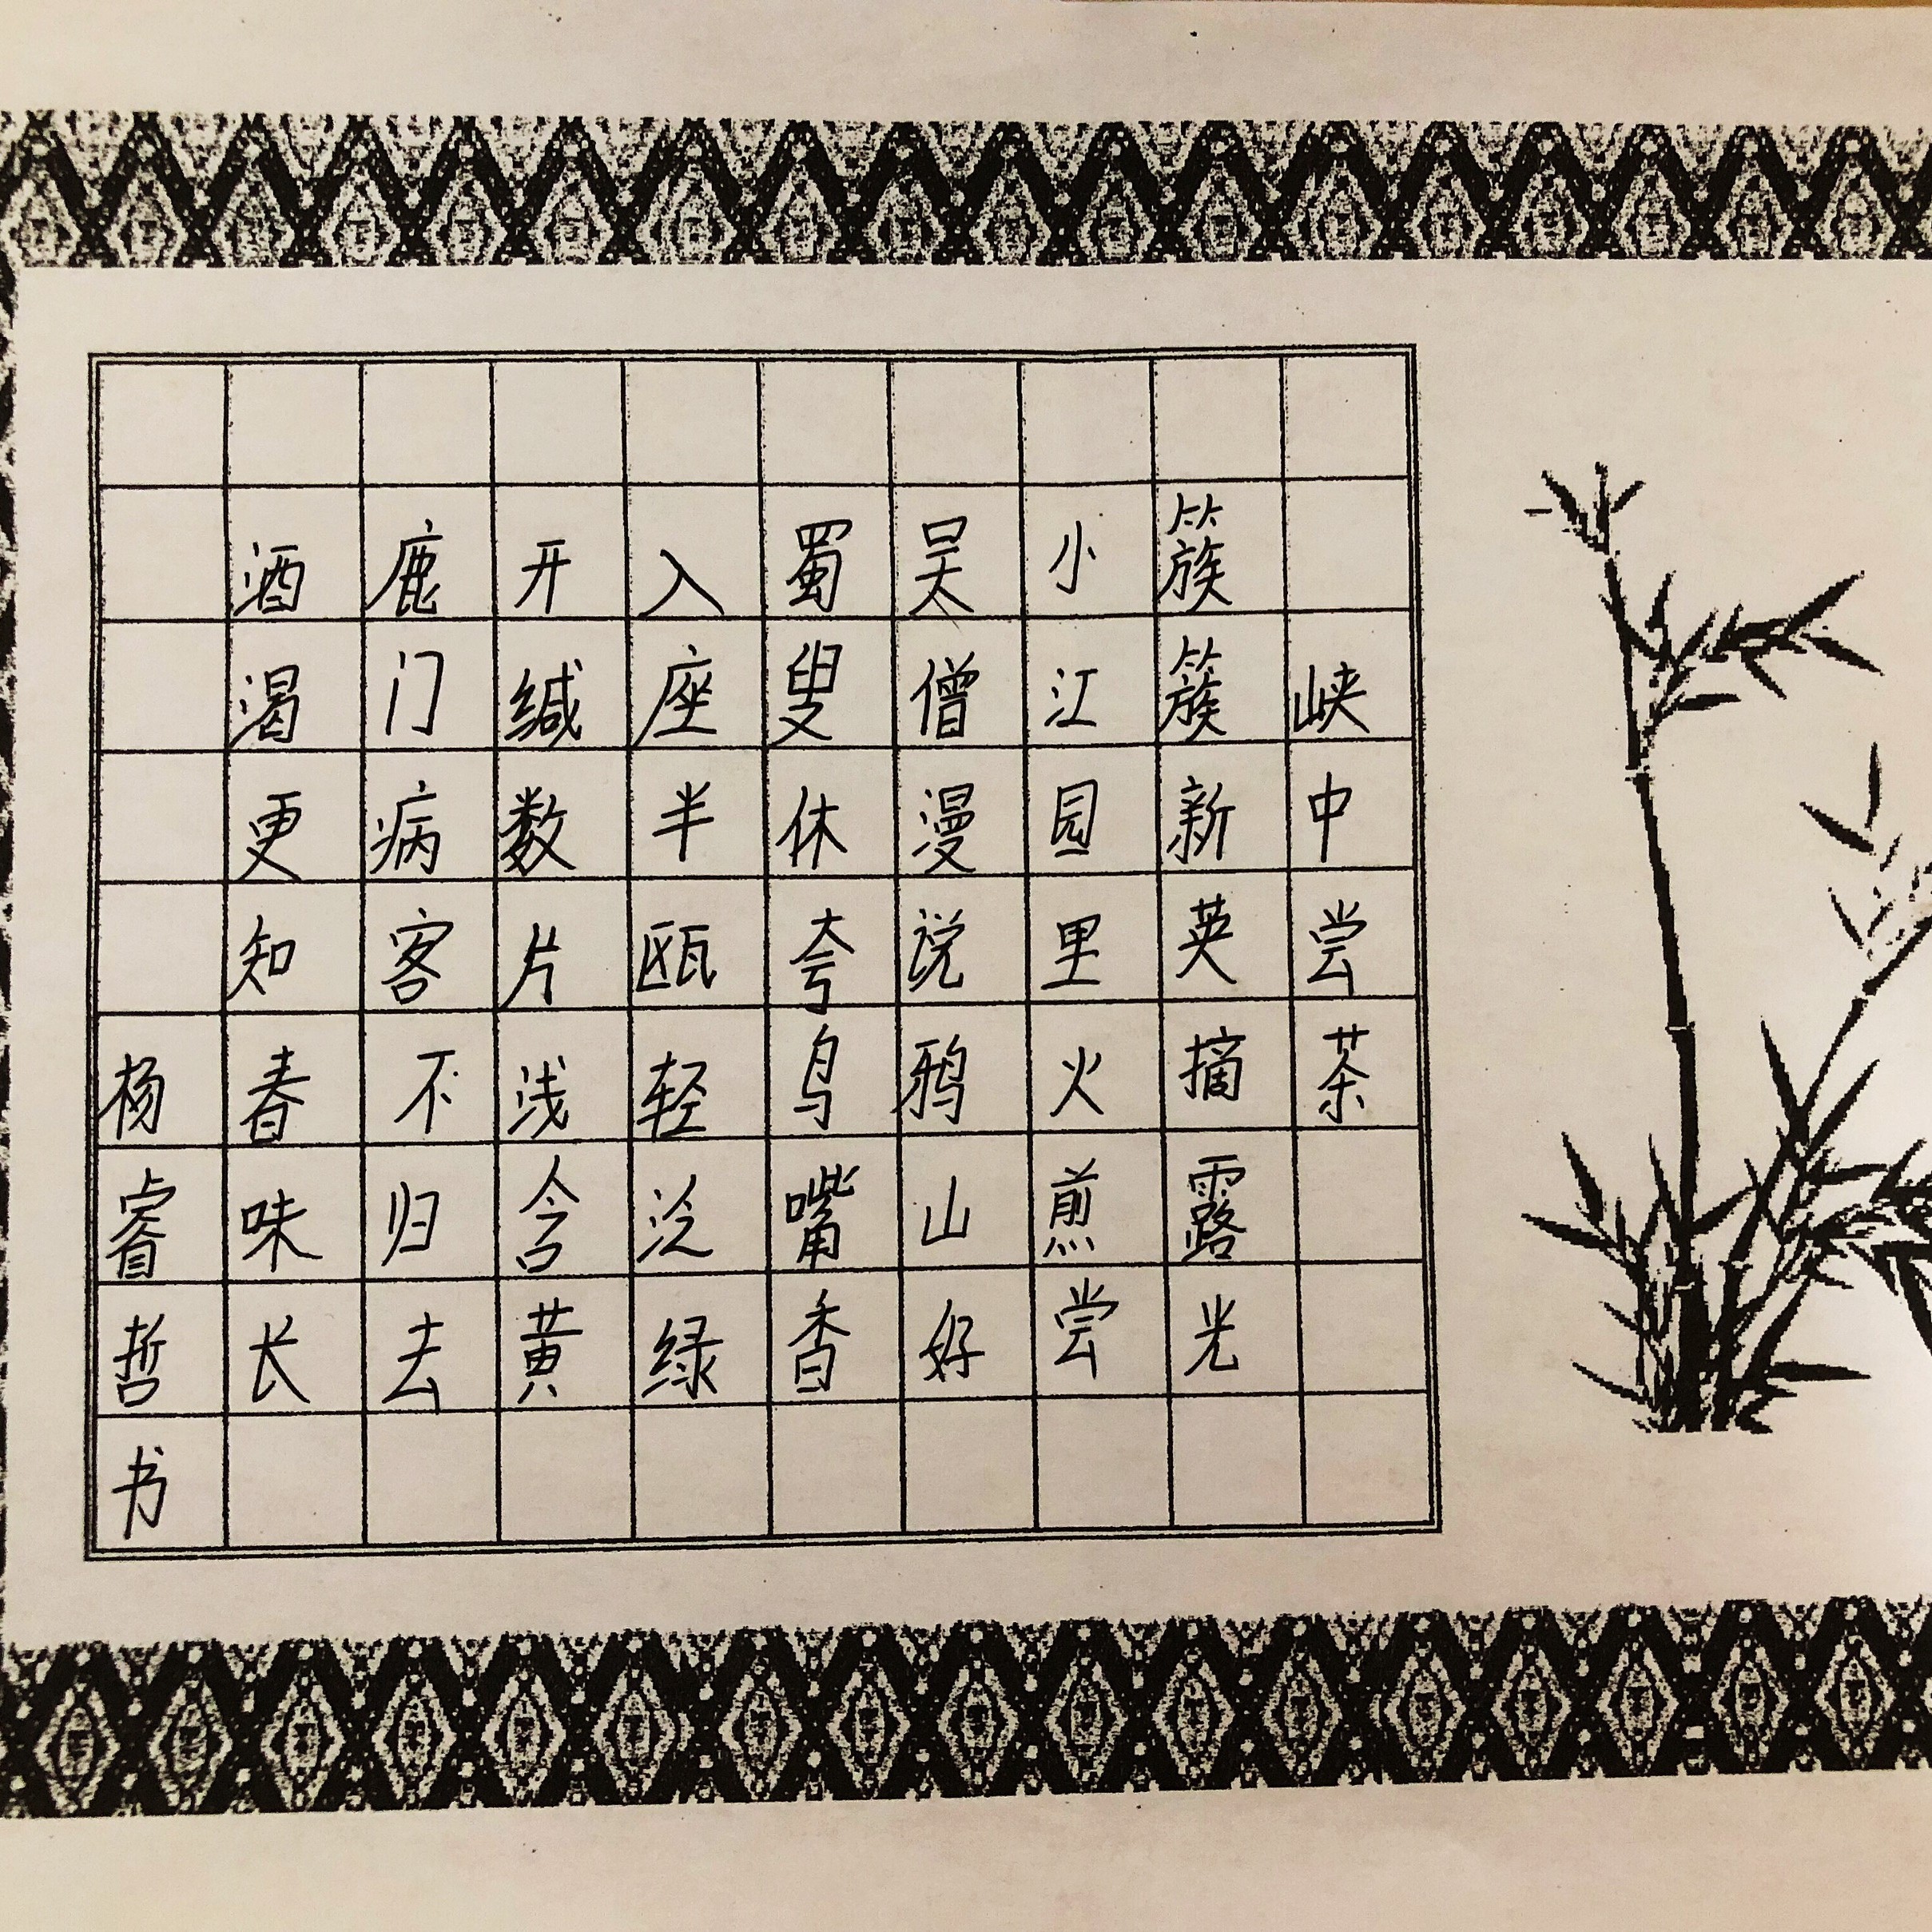 峡中尝茶
簇簇新英摘露光
小江园里火煎尝
吴僧漫说鸦山好
蜀叟休夸鸟嘴香
入座半瓯轻泛绿
开缄数片浅含黄
鹿门病客不归去
酒渴更知春味长
杨睿哲书